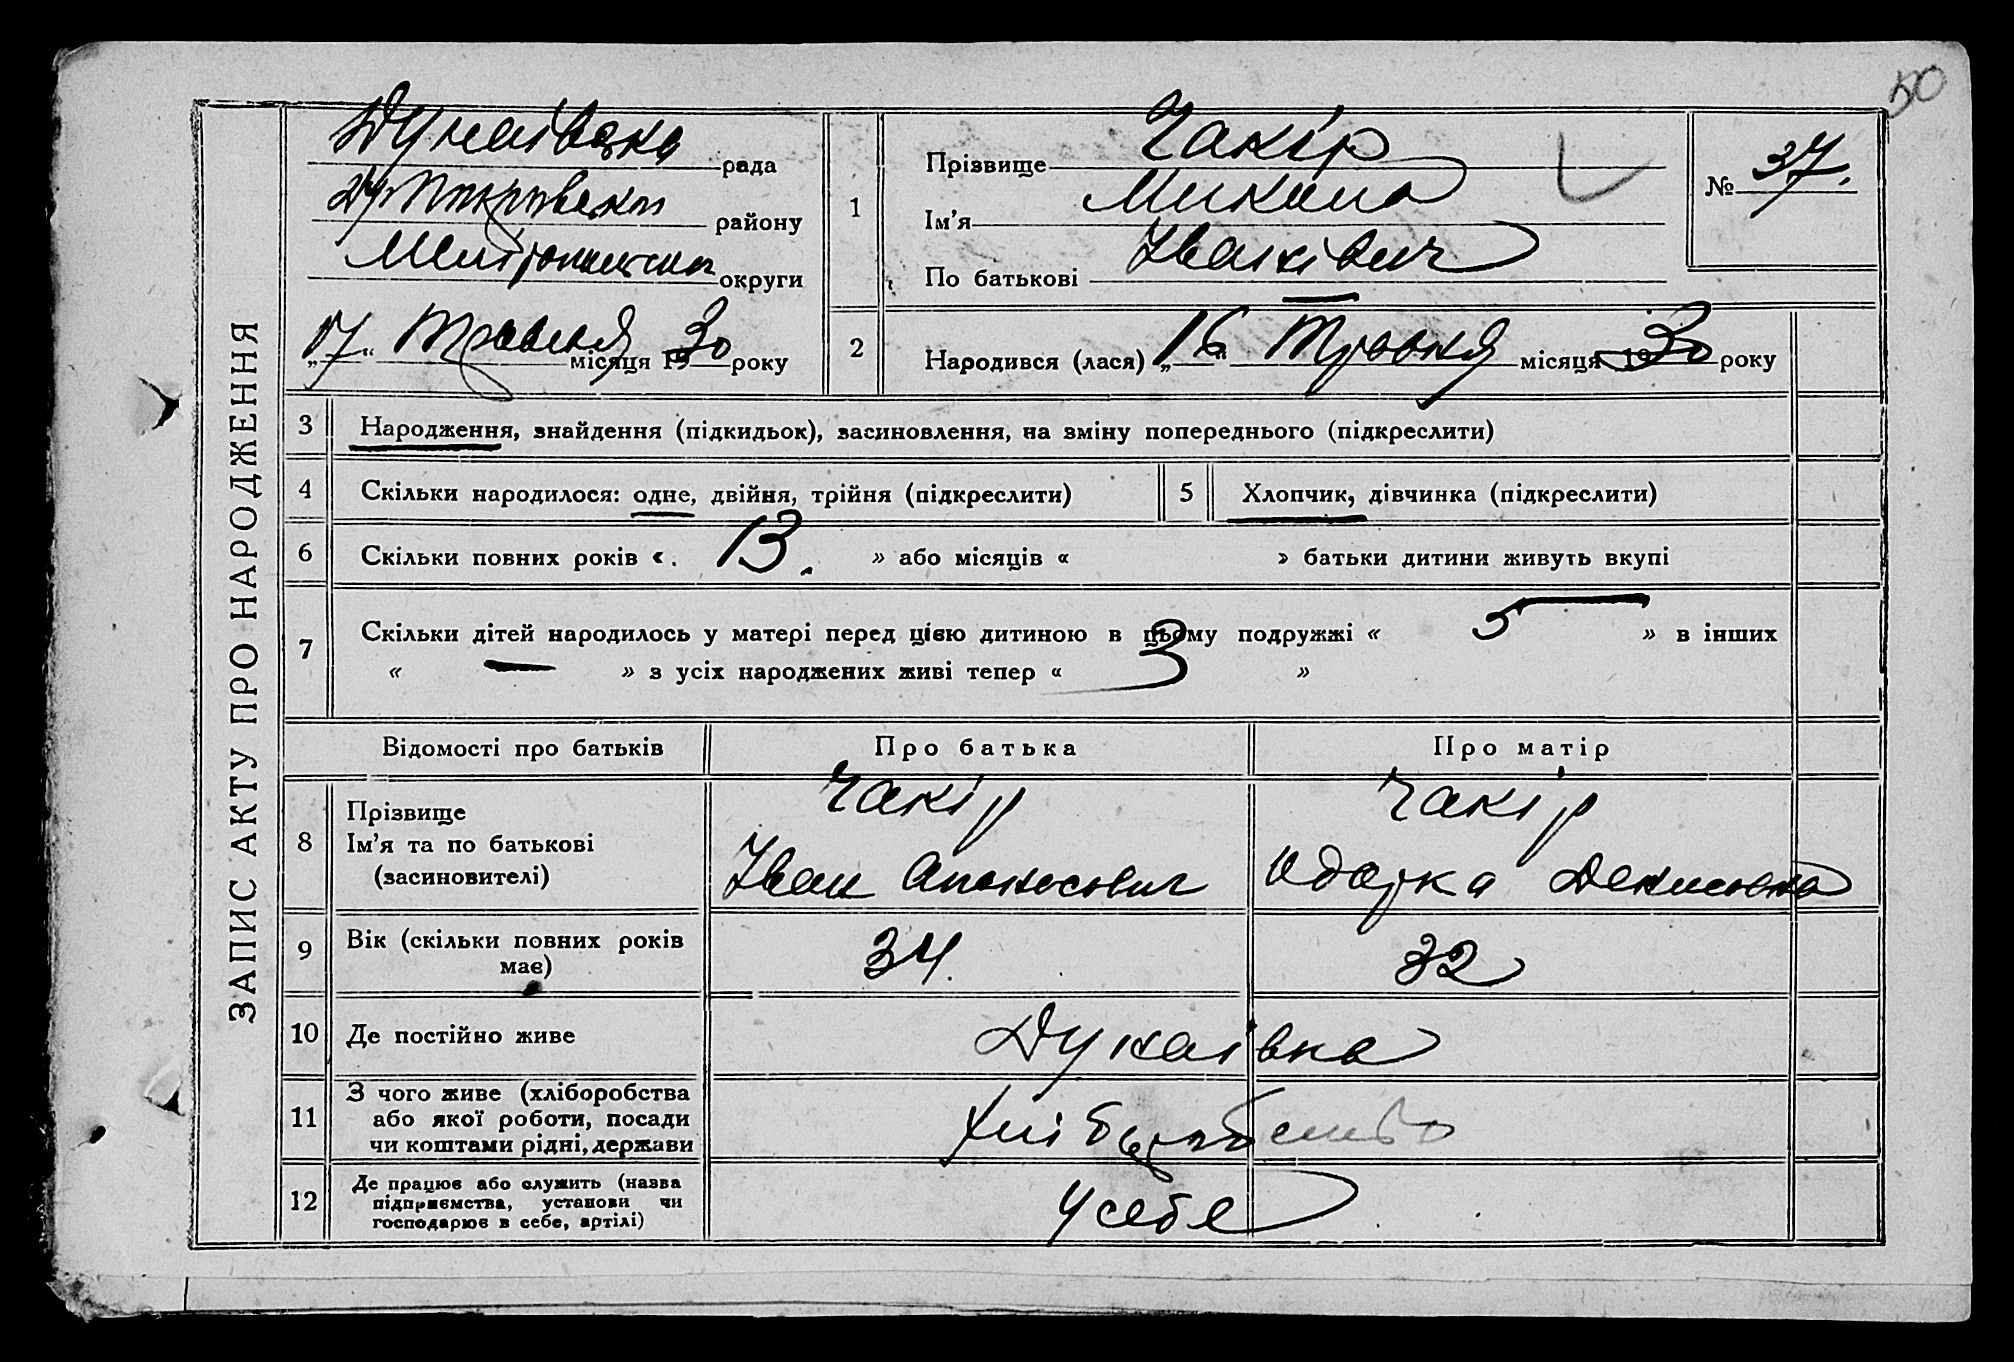 50
ЗАПИС АКТУ ПРО НАРОДЖЕННЯ
Дунаївська рада
району
Мелітопільської округи
„17“ Травня місяця 1930 року
1
Прізвище Чакір
Ім'я Микола
По батькові Іванівич
№ 37.
2
Народився (лася) „16“ Травня місяця 1930 року
3 Народження, знайдення (підкидьок), засиновлення, на зміну попереднього (підкреслити)
4 Скільки народилося: одне, двійня, трійня (підкреслити)
5 Хлопчик, дівчинка (підкреслити)
6 Скільки повних років « 13. » або місяців « » батьки дитини живуть вкупі
7 Скільки дітей народилось у матері перед цією дитиною в цьому подружжі « 5 » в інших
« — » з усіх народжених живі тепер « 3 »
Відомості про батьків Про батька Про матір
8
Прізвище
Ім'я та по батькові
(засиновителі)
Чакір
Іван Апанасович
Чакір
Одарка Денисовна
9
Вік (скільки повних років
має)
34. 32
10 Де постійно живе Дунаівка
11
З чого живе (хліборобства
або якої роботи, посади
чи коштами рідні, держави
Хліборобство
12
Де працює або служить (назва
підприємства, установи чи
господарює в себе, артілі)
У себе